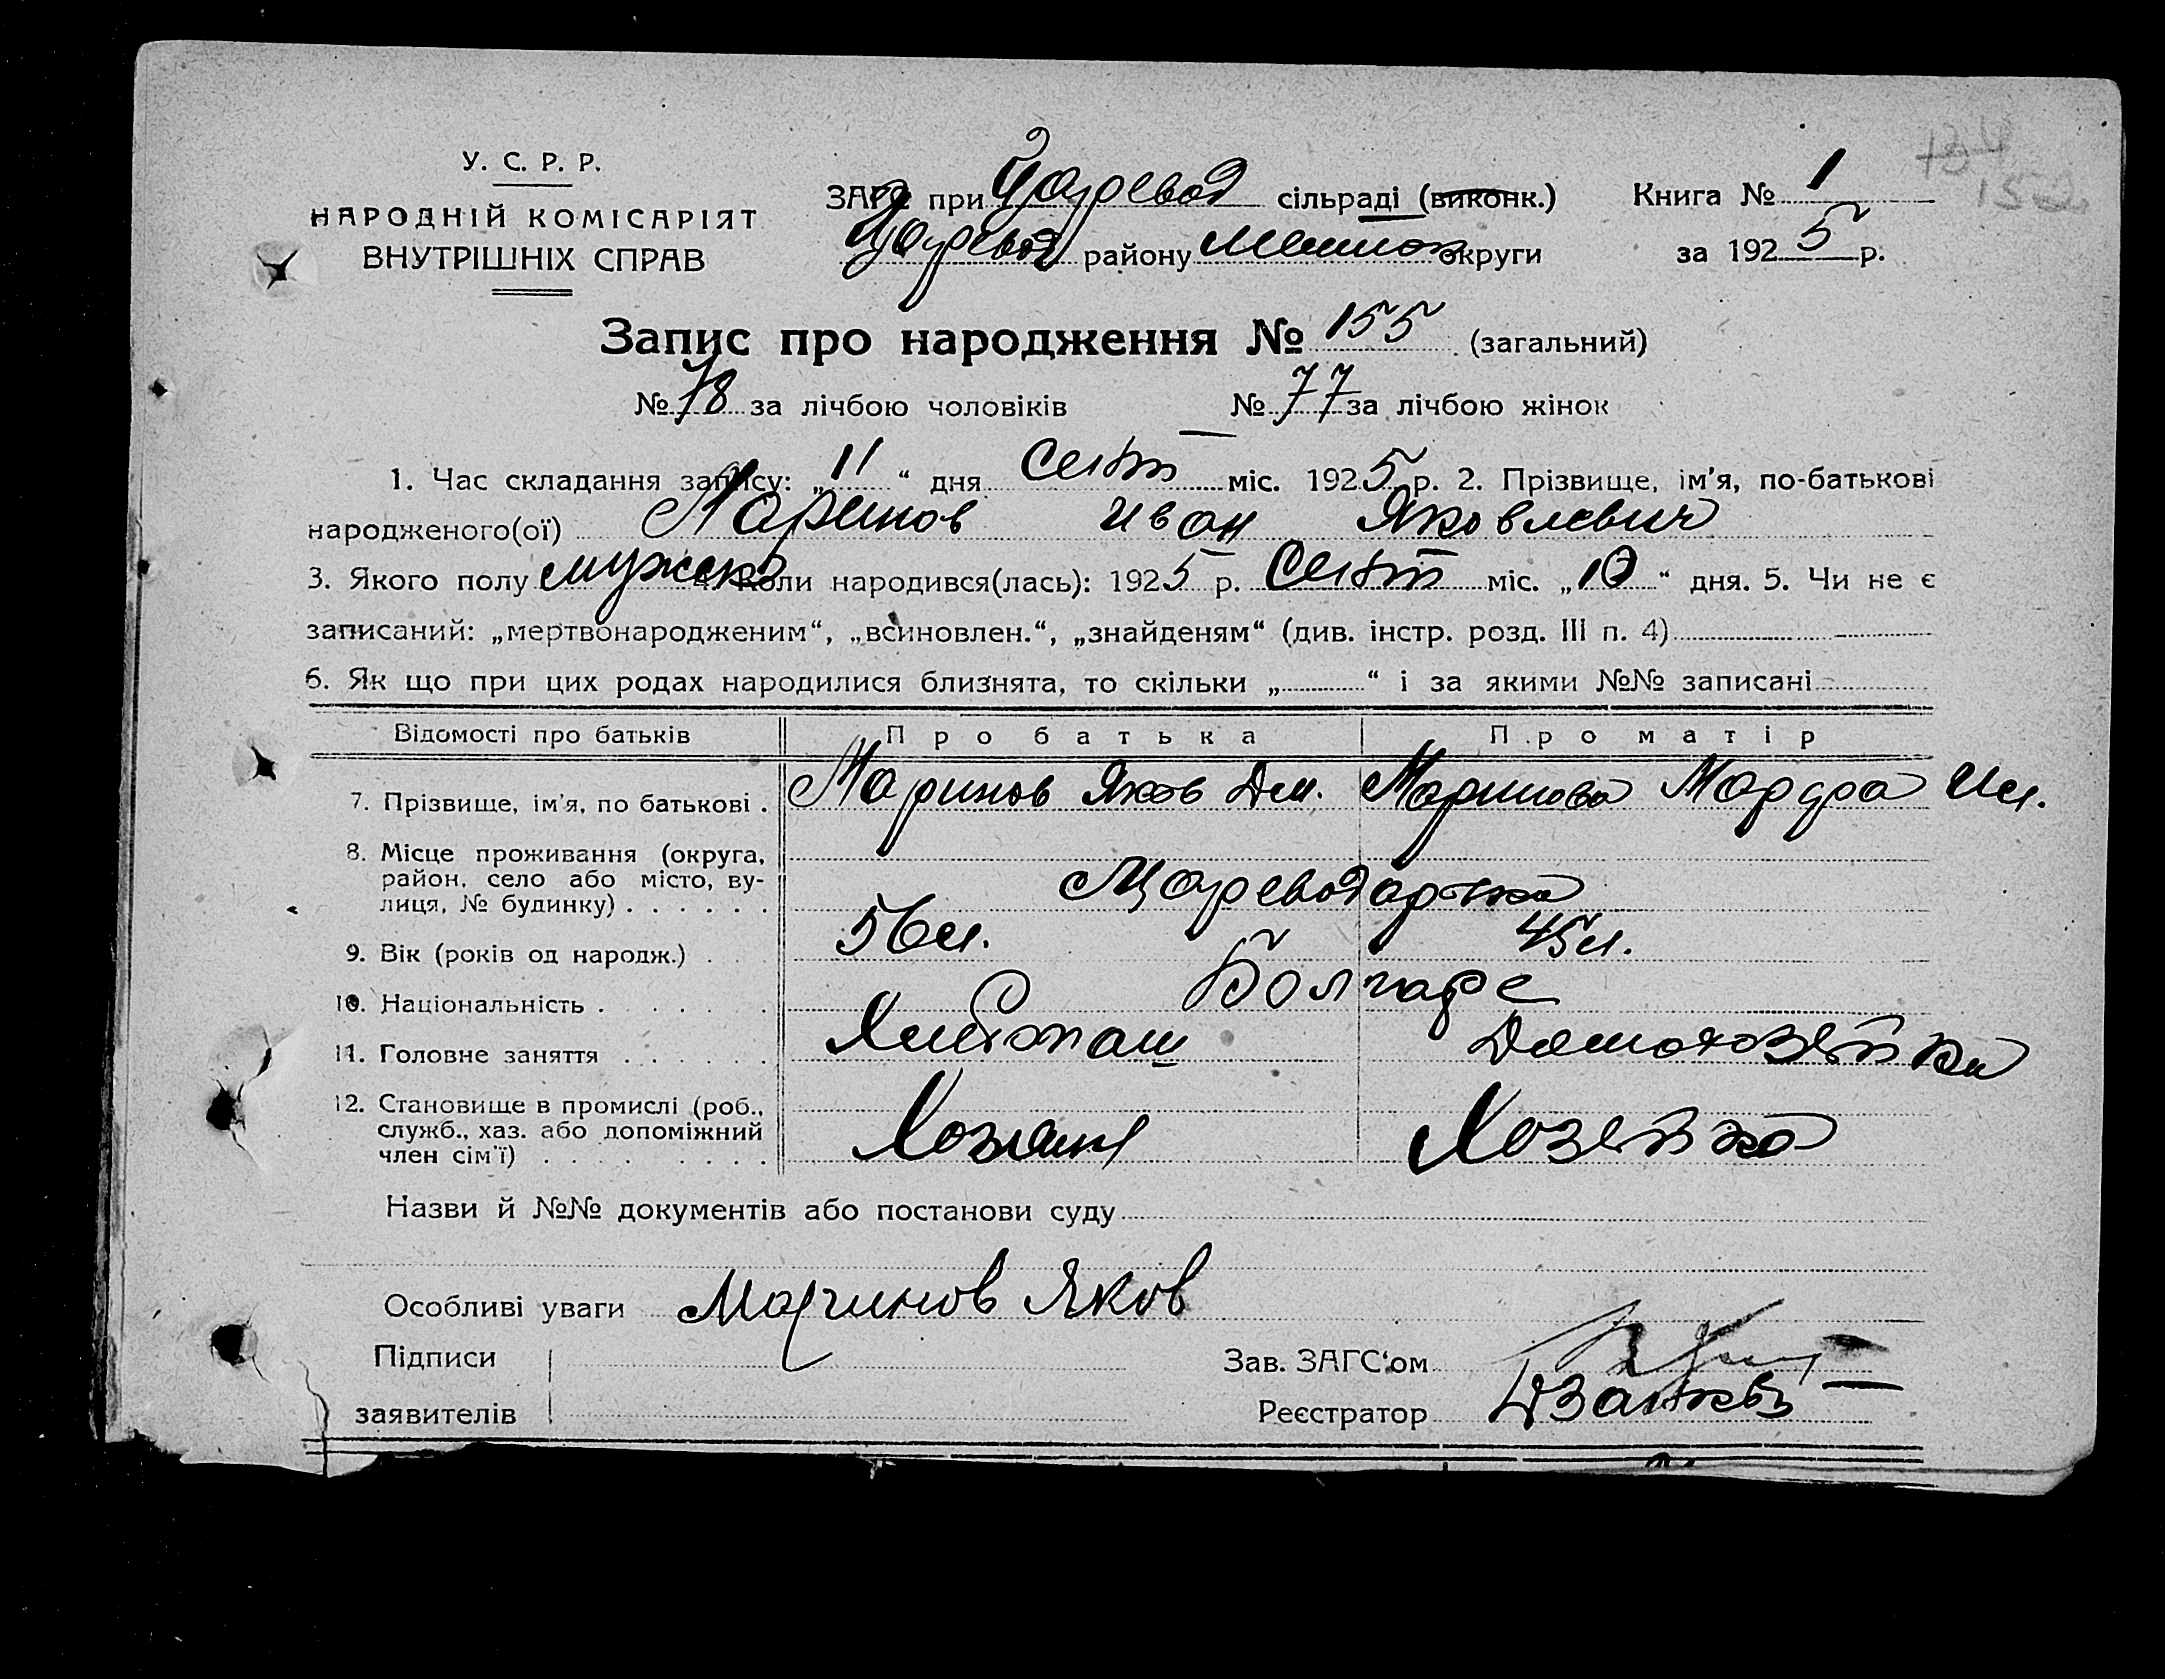 У. С. Р. Р.
НАРОДНІЙ КОМІСАРІЯТ
ВНУТРІШНІХ СПРАВ
ЗАГС при Царевод сільраді (виконк.)
Царевод району округи
Книга № 1
за 1925 р.
Запис про народження № 155 (загальний)
№ 78 за лічбою чоловіків № 77 за лічбою жінок
1. Час складання запису: „11“ дня Сент міс. 1925 р. 2. Прізвище, ім'я, по-батькові
народженого(ої) Маринов Иван Яковлевич
3. Якого полу мужско 4. Коли народився(лась): 1925 р. Сент міс. „10“ дня. 5. Чи не є
записаний: „мертвонародженим“, „всиновлен.“, „знайденям“ (див. інстр. розд. III п. 4)
6. Як що при цих родах народилися близнята, то скільки „ “ і за якими №№ записані
Відомості про батьків Про батька Про матір
7. Прізвище, ім'я, по батькові . Маринов Яков Дм. Маринова Ил.
8. Місце проживання (округа,
район, село або місто, ву-
лиця, № будинку) . . . . . .
9. Вік (років од народж.) . . . 56 л. 45 л.
10. Національність . . . . . . Болгаре
11. Головне заняття . . . . . . Хлебопаш Домохозейка
12. Становище в промислі (роб.,
служб., хаз. або допоміжний
член сім'ї) . . . . . . . . Хозяин Хозейка
Назви й №№ документів або постанови суду
Особливі уваги Маринов Яков
Підписи
заявителів
Зав. ЗАГС'ом
Реєстратор